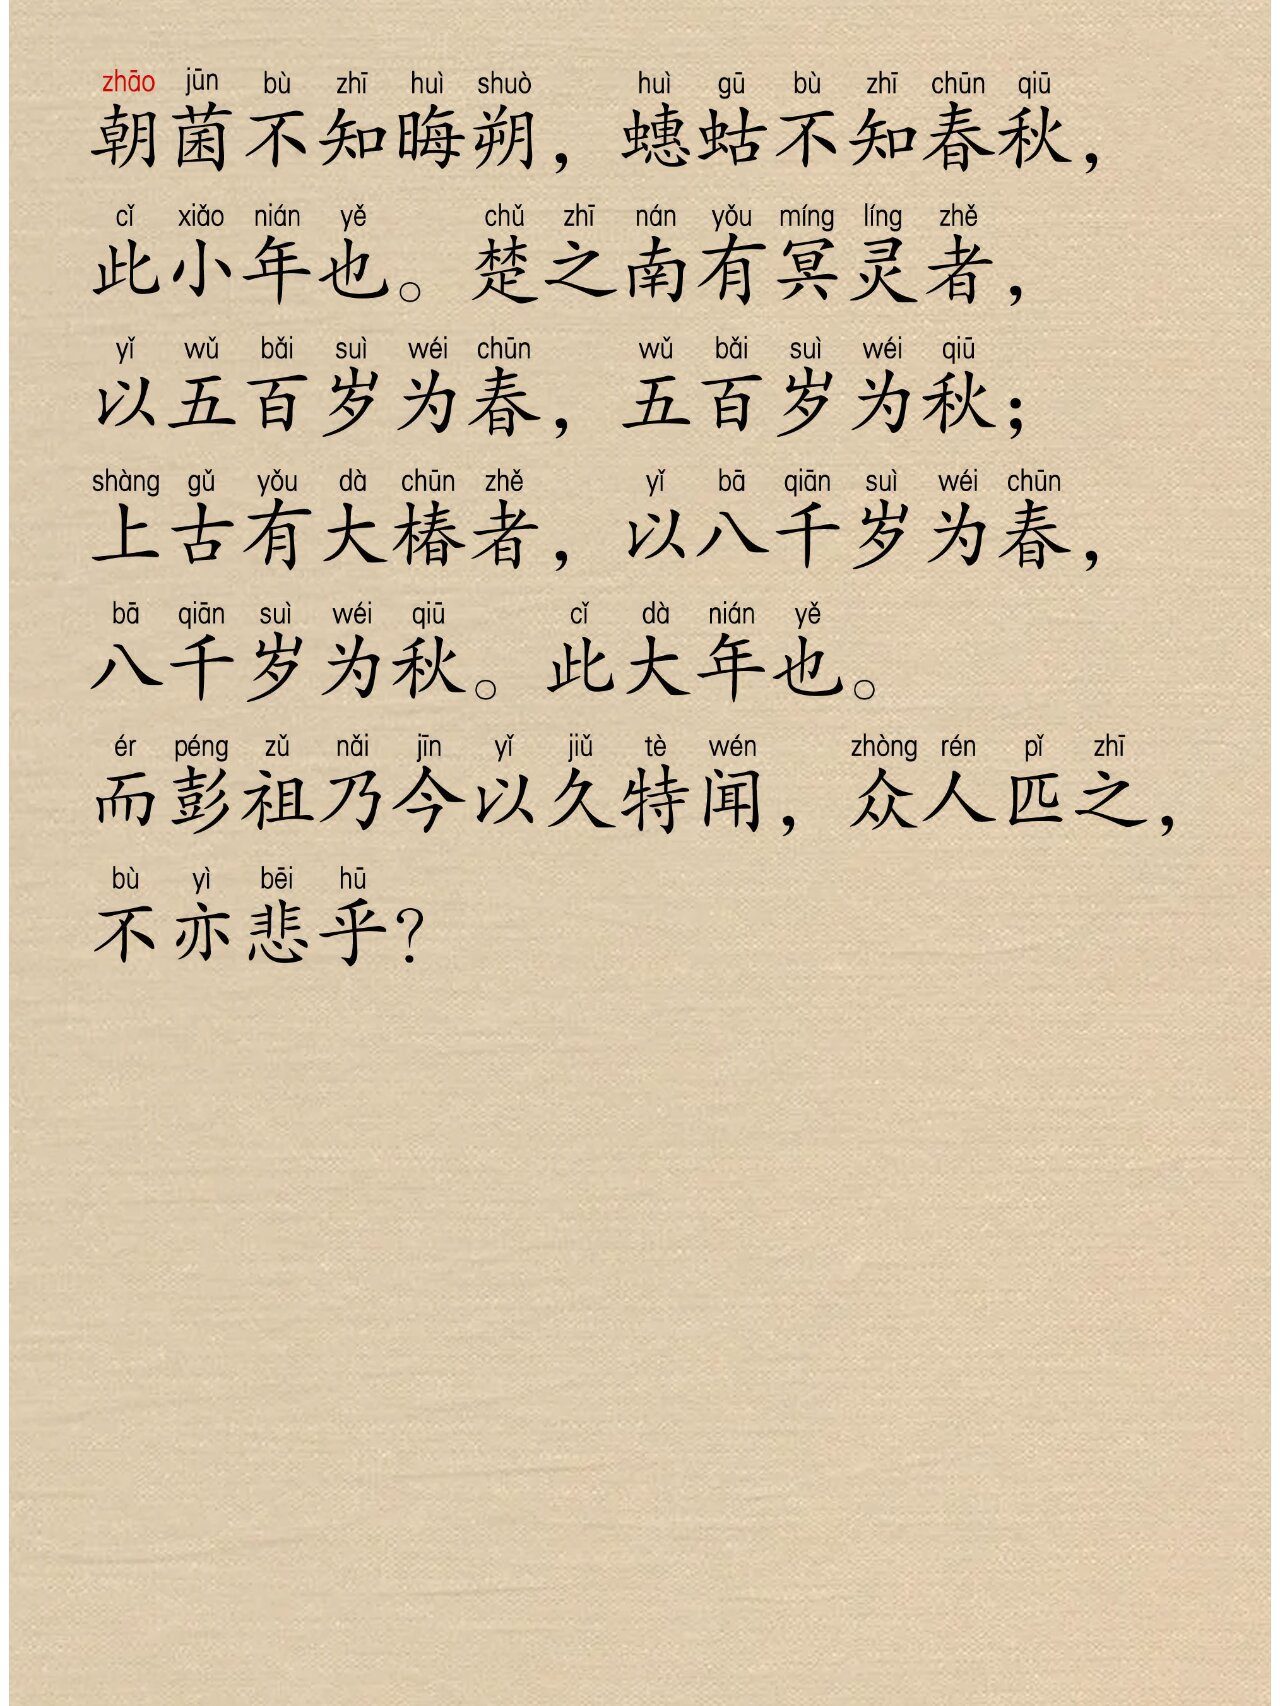 zhāo jūn bù zhī huì shuò huì gū bù zhī chūn qiū
朝菌不知晦朔，蟪蛄不知春秋，
cǐ xiǎo nián yě chǔ zhī nán yǒu míng líng zhě
此小年也。楚之南有冥灵者，
yǐ wǔ bǎi suì wéi chūn wǔ bǎi suì wéi qiū
以五百岁为春，五百岁为秋；
shàng gǔ yǒu dà chūn zhě yǐ bā qiān suì wéi chūn
上古有大椿者，以八千岁为春，
bā qiān suì wéi qiū cǐ dà nián yě
八千岁为秋。此大年也。
ér péng zǔ nǎi jīn yǐ jiǔ tè wén zhòng rén pǐ zhī
而彭祖乃今以久特闻，众人匹之，
bù yì bēi hū
不亦悲乎？